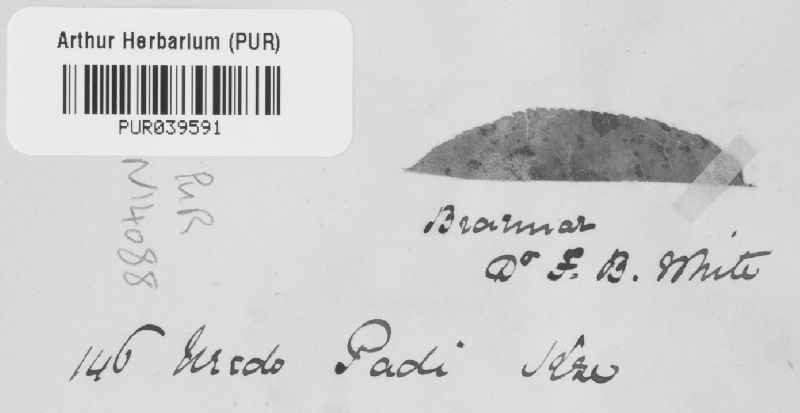 Arthur Herbarium (PUR)
PUR039591
PUR
N14088
Braemar
Dr F. B. White
146 Uredo Padi Kze